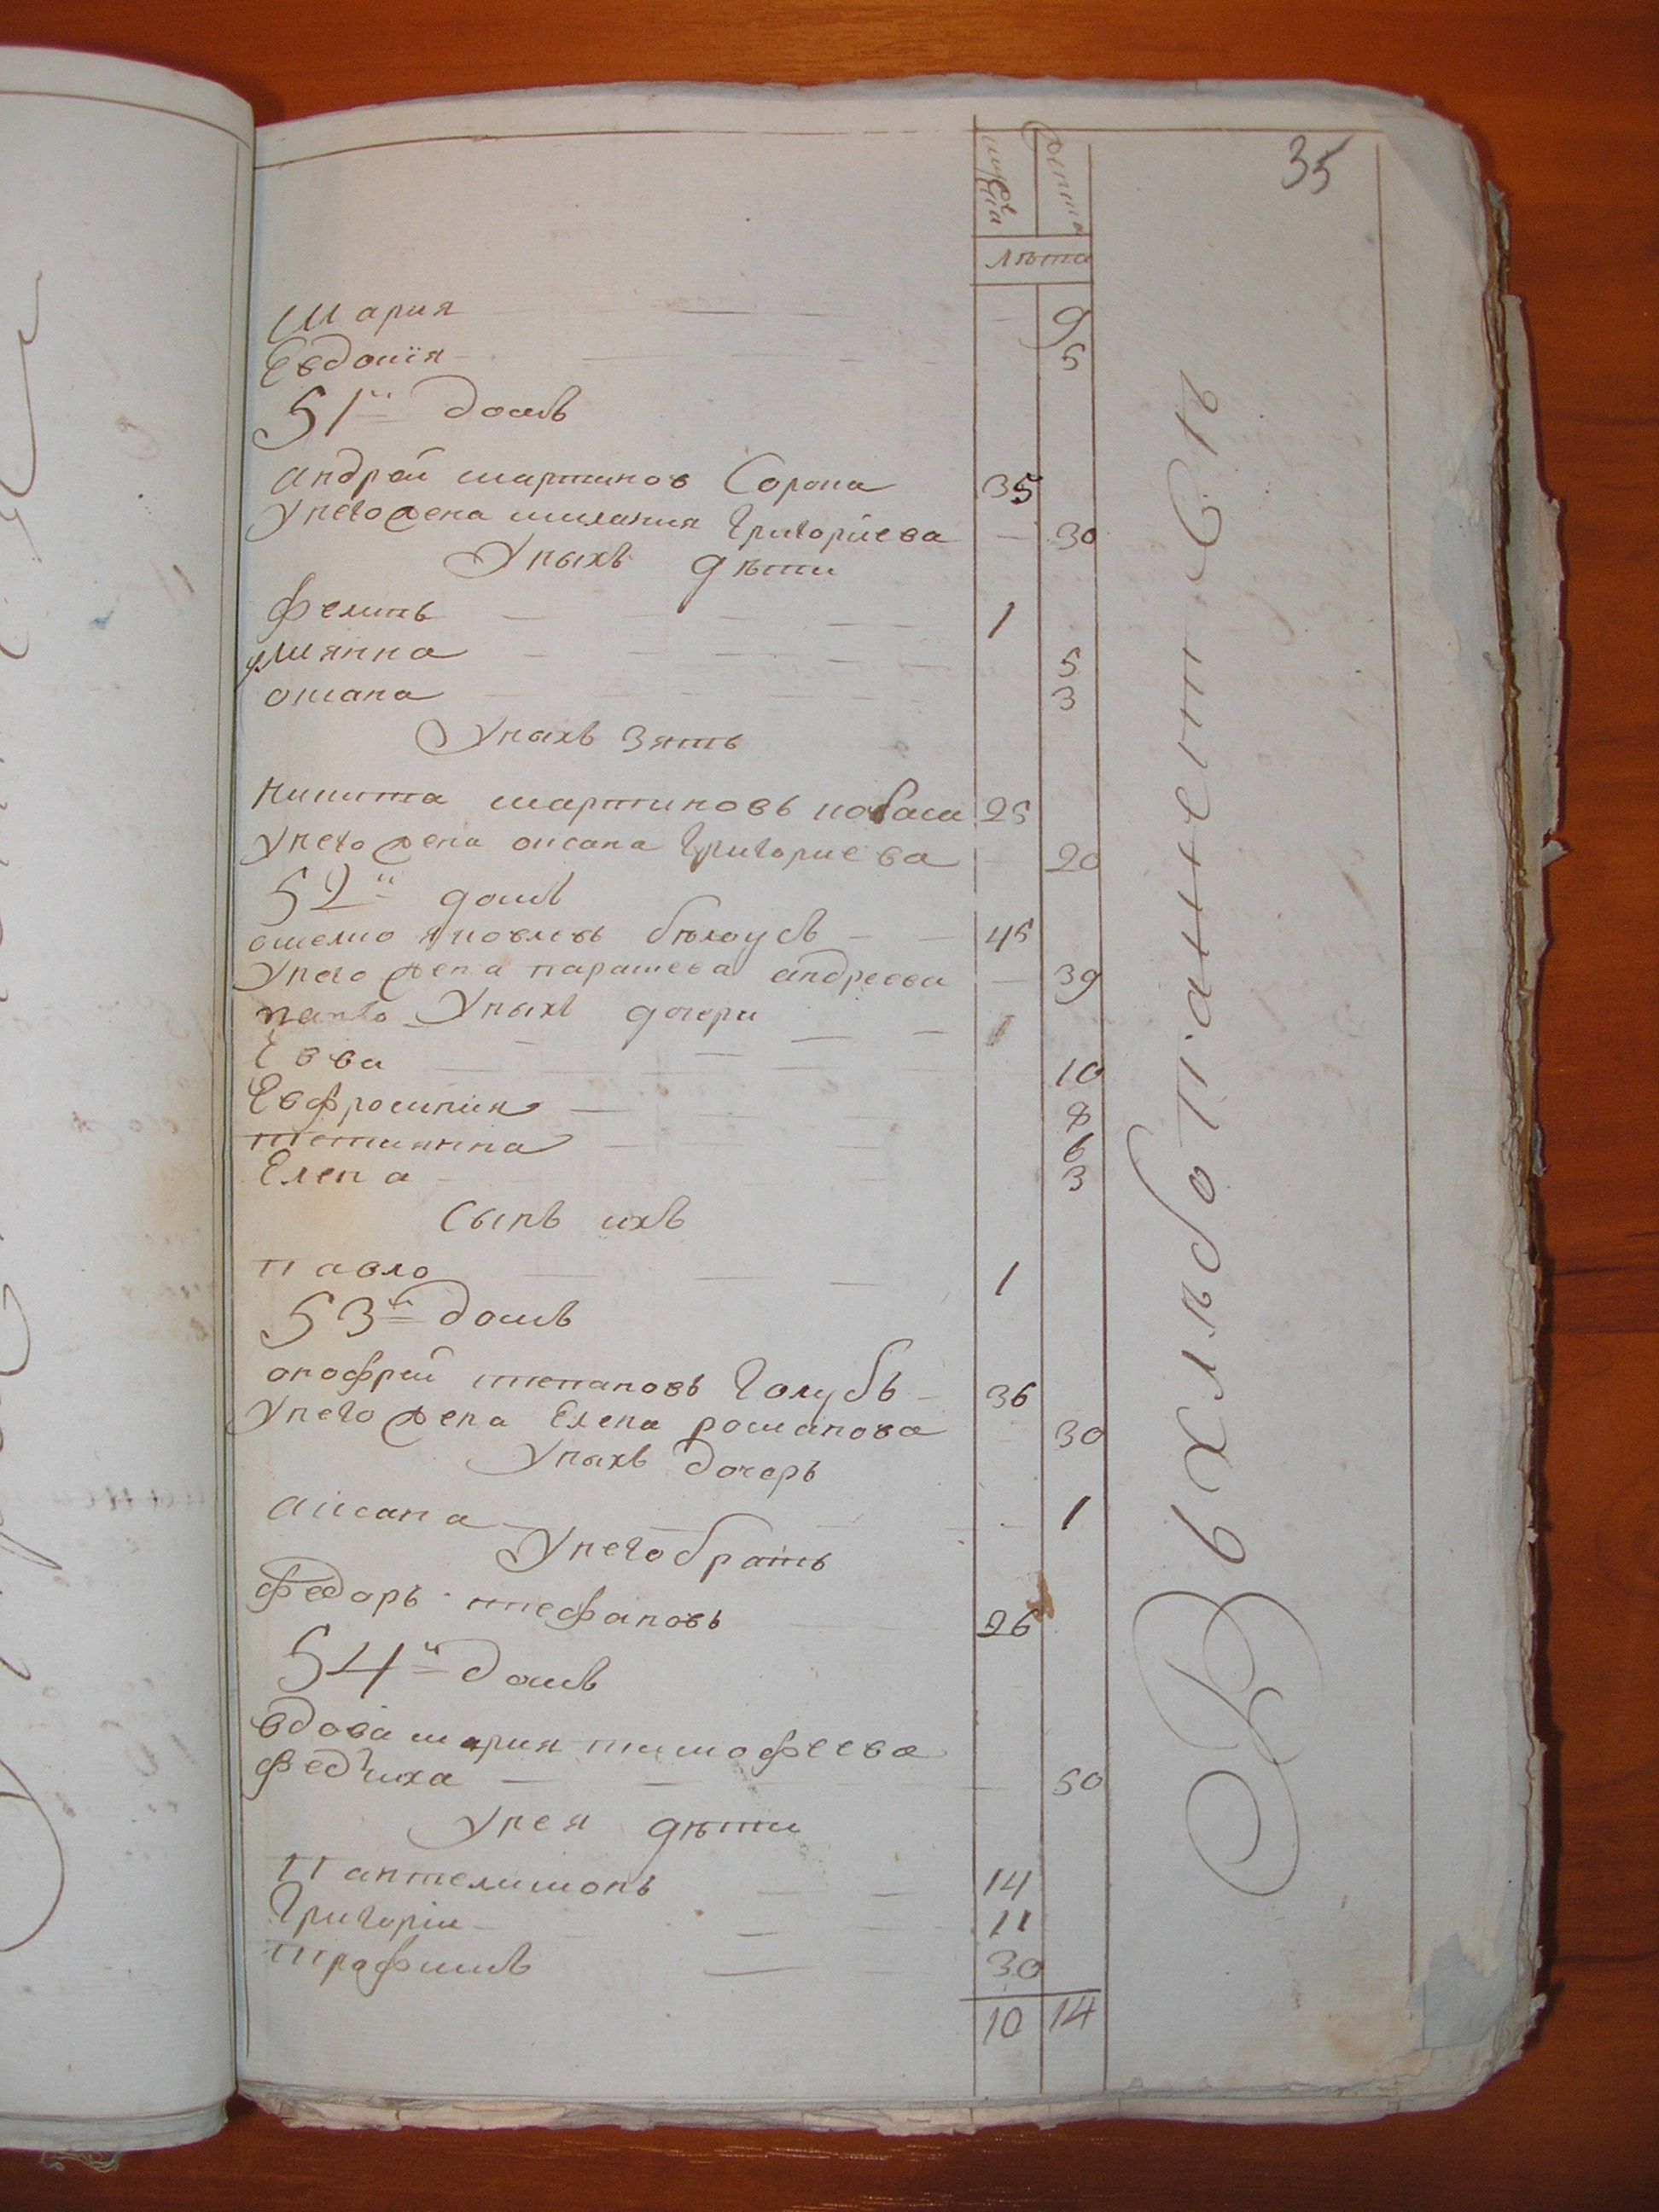 35
мужеска
женска
лѣта
Мария 9
Евдокїя 5
51й домъ
Андрей мартинов Сорока 35
Унего жена милания григориева 30
Уныхъ дѣти
Филипъ 1
Миянна 5
оксана 3
Уныхъ зять
Никита мартиновъ 25
Унего жена оксана григориева 20
52й домъ
омелко яковлевъ бѣлоусъ 45
Унего жена парашева андреева 39
Уныхъ дочери
Евва 10
Евфросиния 8
тетиянна 6
Елена 3
Сынъ ихъ
Павло 1
53й домъ
онофрей степановъ Голубъ 36
Унего жена Елена романова 30
Уныхъ дочеръ
аксана 1
Унего братъ
Федоръ стефановъ 26
54й домъ
вдова мария тимофеева
федчиха 50
Унея дѣти
Пантелимонъ 14
Григорїи 11
трофимъ 30
10 14
Въ хлѣбопашест